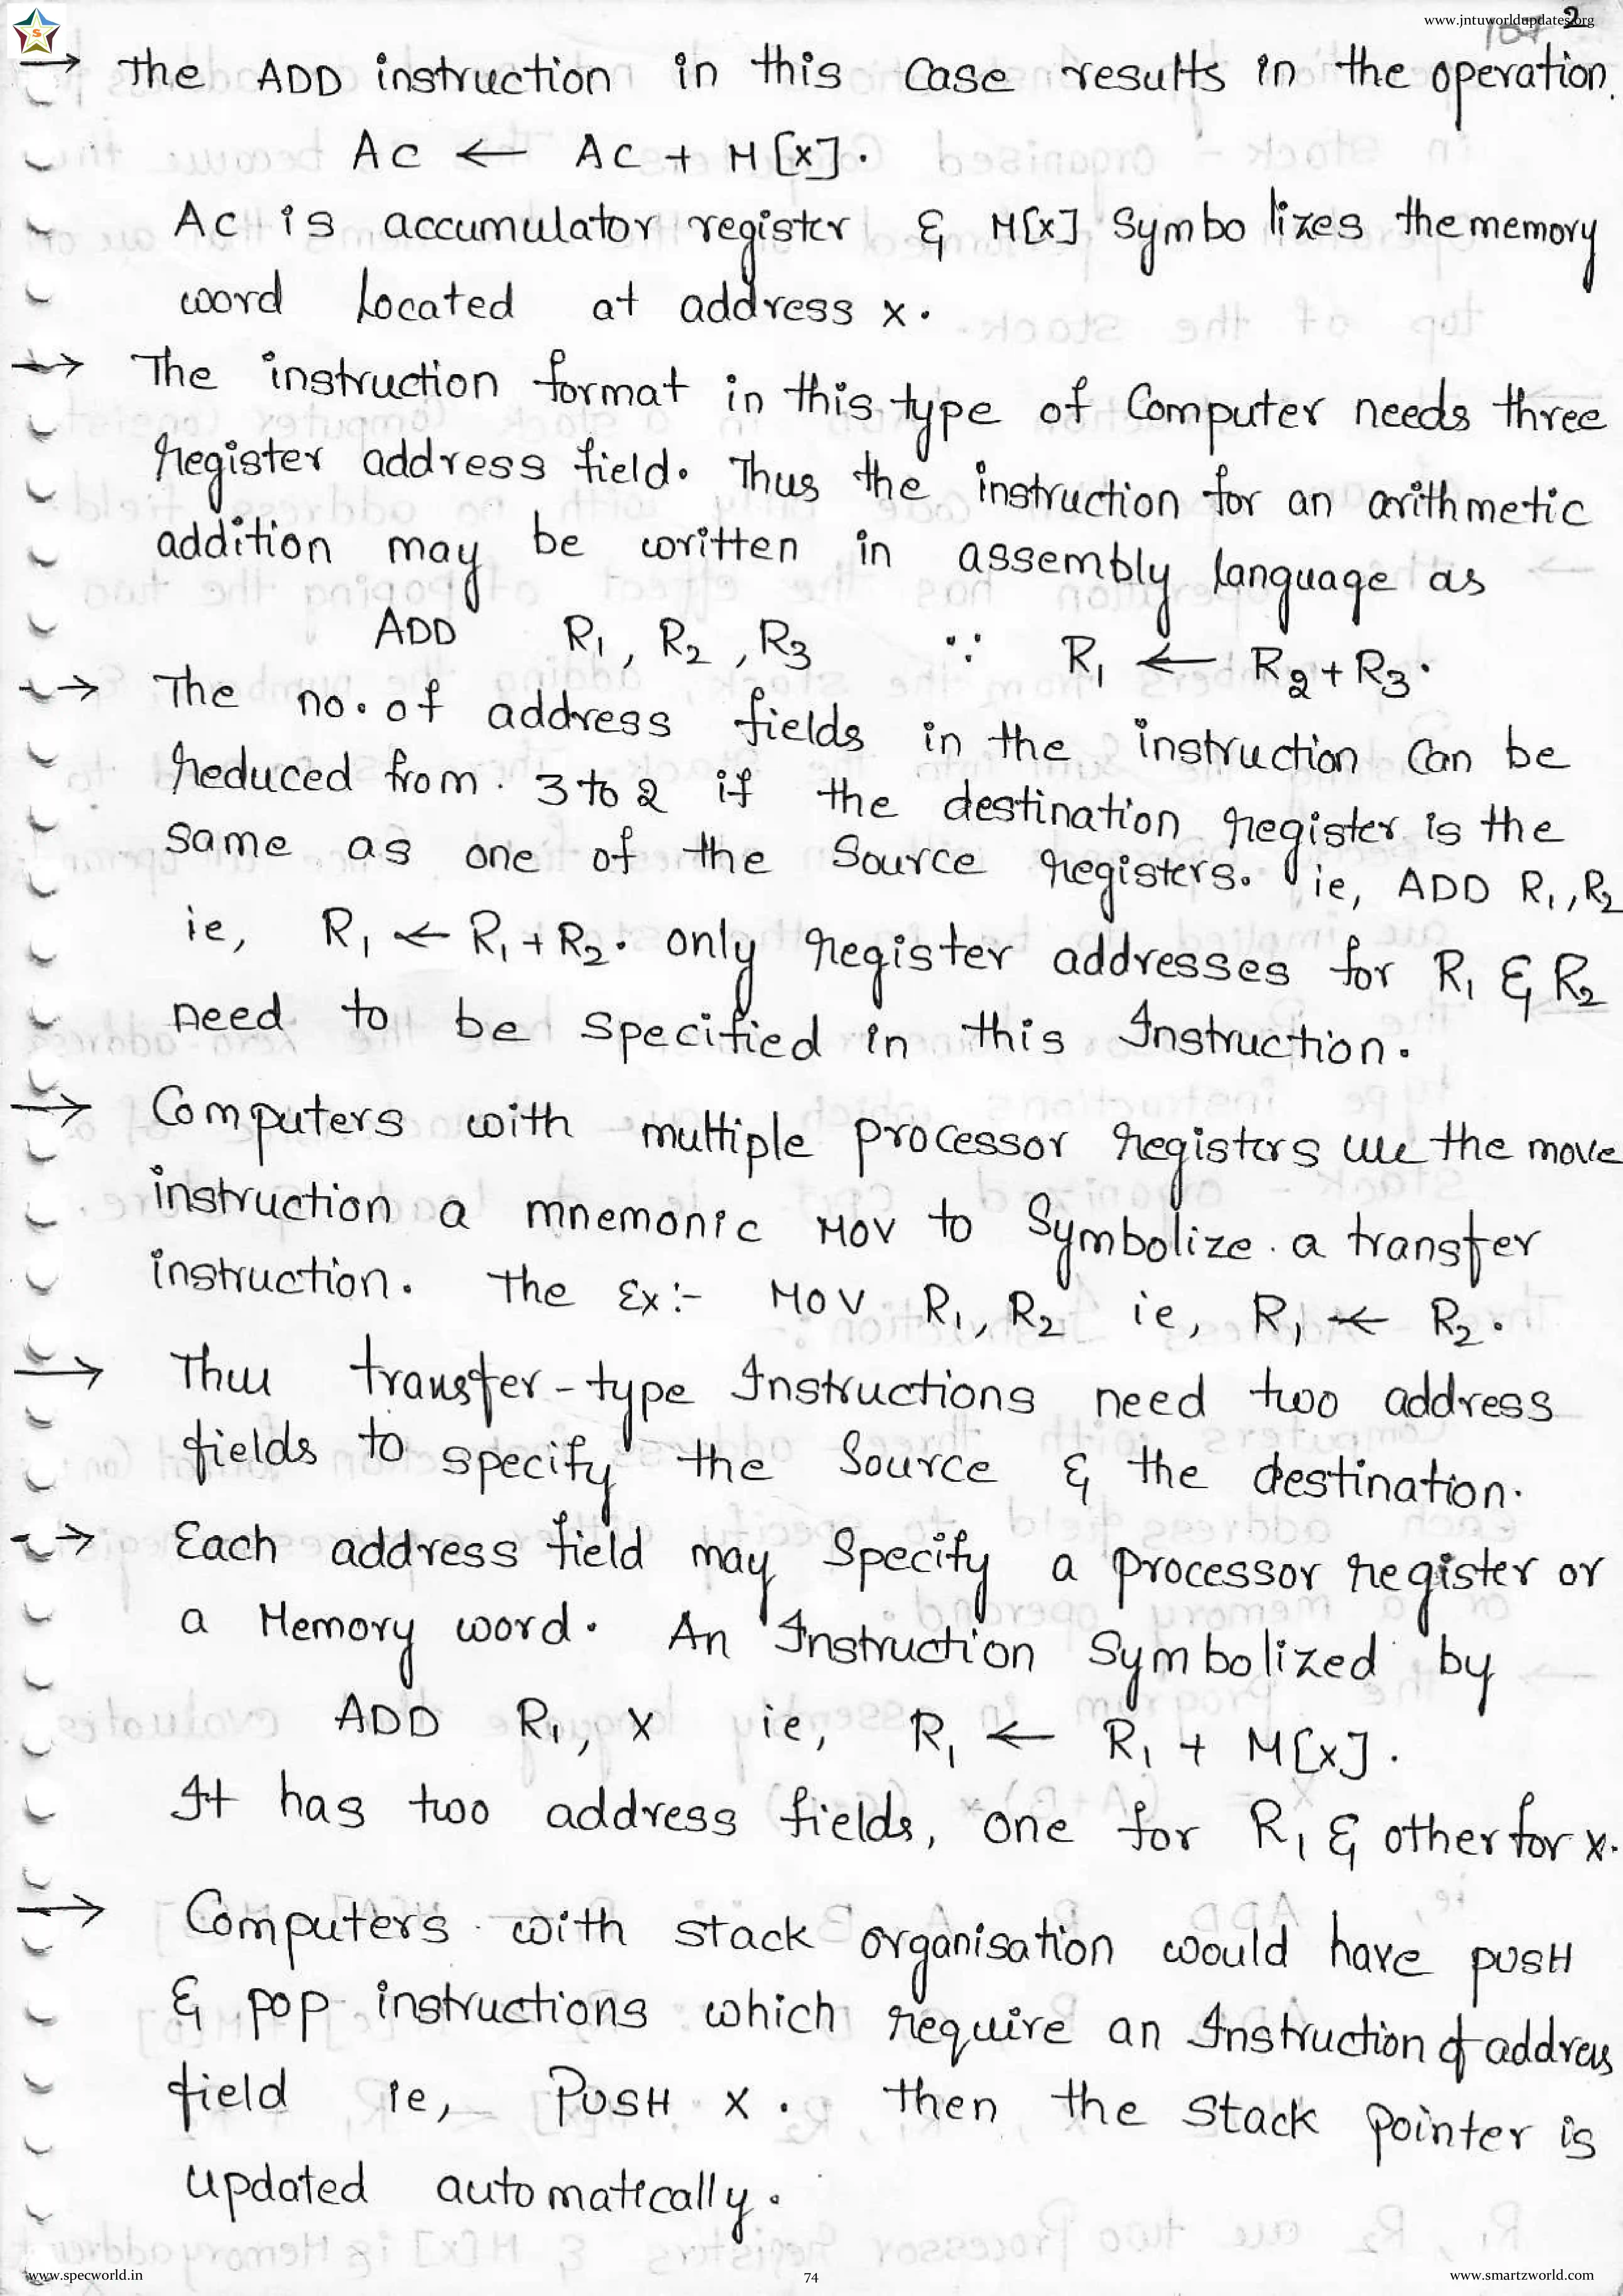 www.jntuworldupdates.org
2
107
S
→ The ADD instruction in this case results in the operation.
AC ← AC + M[x].
AC is accumulator register & M[x] Symbolizes the memory
word located at address x.
→ The instruction format in this type of Computer needs three
Register address field. Thus the instruction for an arithmetic
addition may be written in assembly language as
ADD R1, R2, R3 ∵ R1 ← R2 + R3.
→ The no. of address fields in the instruction can be
Reduced from 3 to 2 if the destination register is the
same as one of the Source registers. ie, ADD R1, R2
ie, R1 ← R1 + R2. only register addresses for R1 & R2
need to be specified in this Instruction.
→ Computers with multiple processor registers use the move
instruction a mnemonic MOV to Symbolize a transfer
instruction. The Ex:- MOV R1, R2 ie, R1 ← R2.
→ Thus transfer-type Instructions need two address
fields to specify the Source & the destination.
→ Each address field may Specify a processor register or
a Memory word. An Instruction Symbolized by
ADD R1, X ie, R1 ← R1 + M[x].
It has two address fields, one for R1 & other for x.
→ Computers with stack organisation would have PUSH
& POP instructions which require an Instruction of address
field ie, PUSH X. Then the stack pointer is
updated automatically.
www.specworld.in
74
www.smartzworld.com